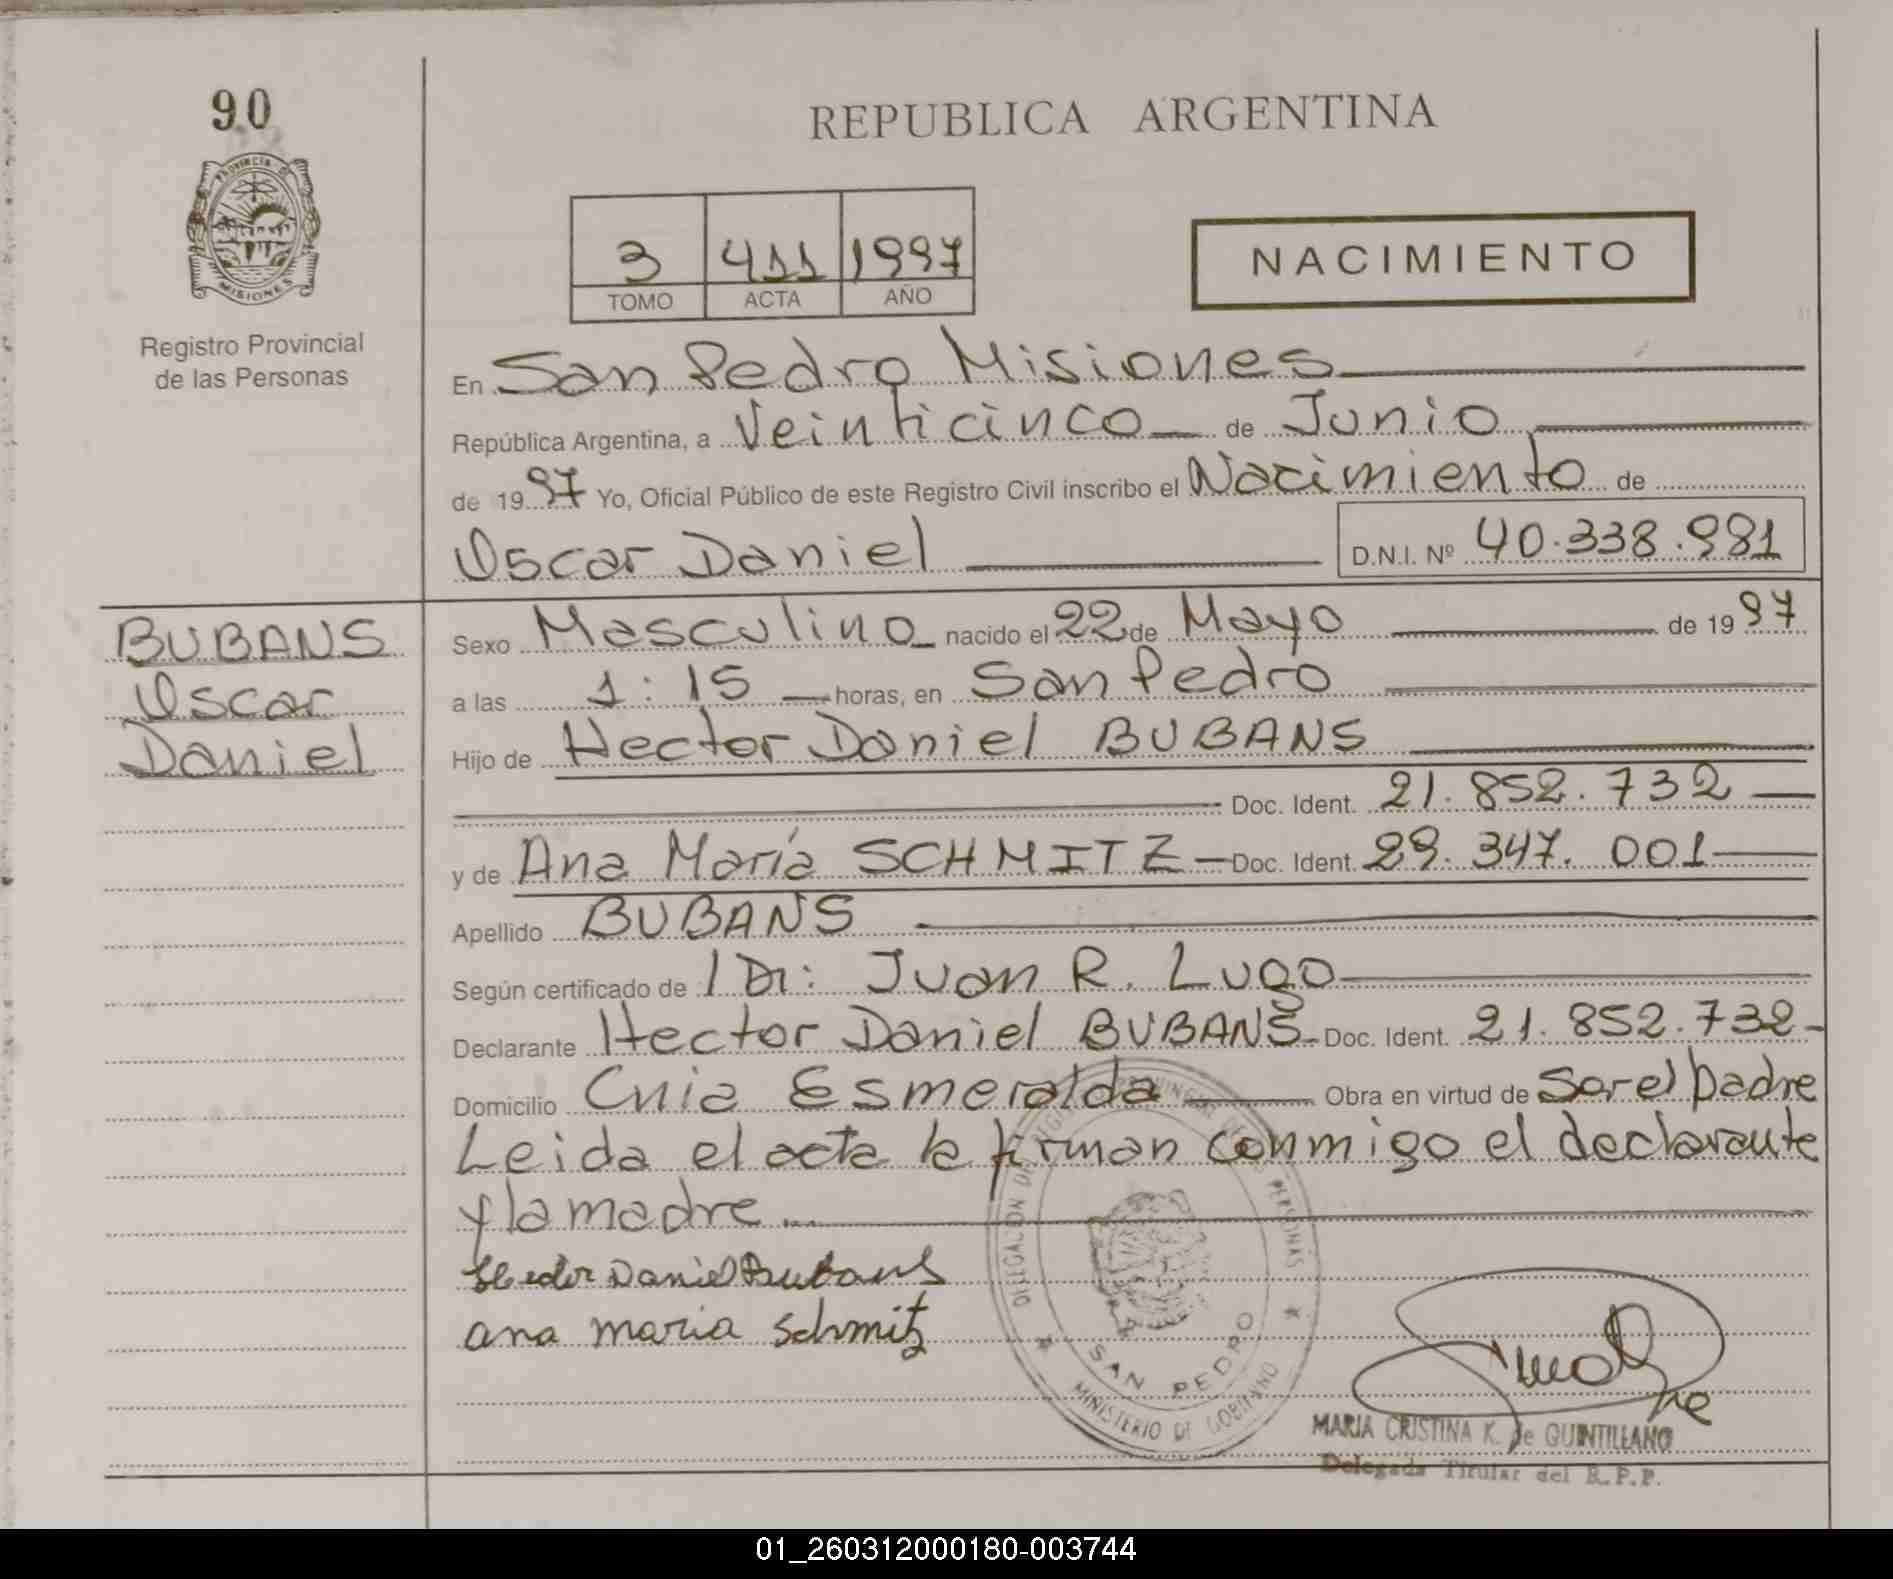 90
PROVINCIA DE
MISIONES
Registro Provincial
de las Personas
REPUBLICA ARGENTINA
3 411 1997
TOMO ACTA AÑO
NACIMIENTO
En San Pedro Misiones
República Argentina, a Veinticinco de Junio
de 1997 Yo, Oficial Público de este Registro Civil inscribo el Nacimiento de
Oscar Daniel D.N.I. Nº 40.338.981
BUBANS
Oscar
Daniel
Sexo Masculino nacido el 22 de Mayo de 1997
a las 1:15 horas, en San Pedro
Hijo de Hector Daniel BUBANS
Doc. Ident. 21.852.732
y de Ana María SCHMITZ Doc. Ident. 29.347.001
Apellido BUBANS
Según certificado de Dr: Juan R. Lugo
Declarante Hector Daniel BUBANS Doc. Ident. 21.852.732
Domicilio Cnia Esmeralda Obra en virtud de Ser el padre
Leida el acta la firman conmigo el declarante
y la madre...
Hector Daniel Bubans
ana maria schmitz
DELEGACION DE PERSONAS
SAN PEDRO
MINISTERIO DE GOBIERNO
MARIA CRISTINA K. de QUINTILLANO
Delegada Titular del R.P.P.
01_260312000180-003744